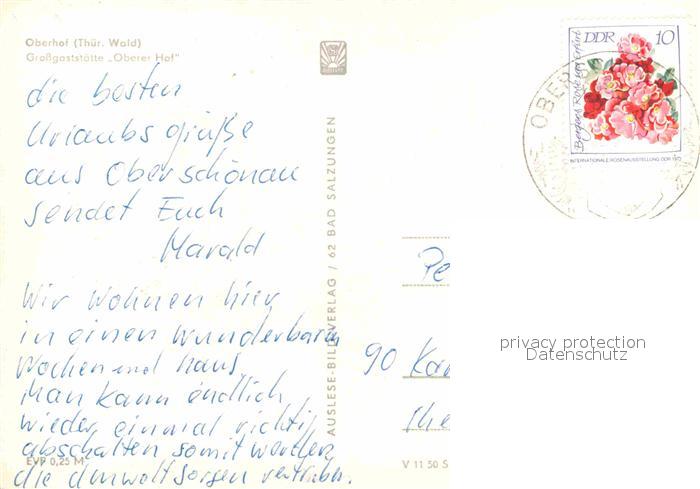 Oberhof (Thür. Wald)
Großgaststätte „Oberer Hof"
die besten
Urlaubsgrüße
aus Oberschönau
sendet Euch
Harald
Wir wohnen hier
in einen wunderbaren
Wochenend haus.
Man kann endlich
wieder einmal richtig
abschalten somit werden
die Umweltsorgen vertrieben.
EVP 0,25 M
AUSLESE-BILD-VERLAG / 62 BAD SALZUNGEN
DDR 10
Bergers Rose Erfurt
INTERNATIONALE ROSENAUSSTELLUNG DDR 1972
OBER
Pe
90 Kar
The
V 11 50 S
privacy protection
Datenschutz